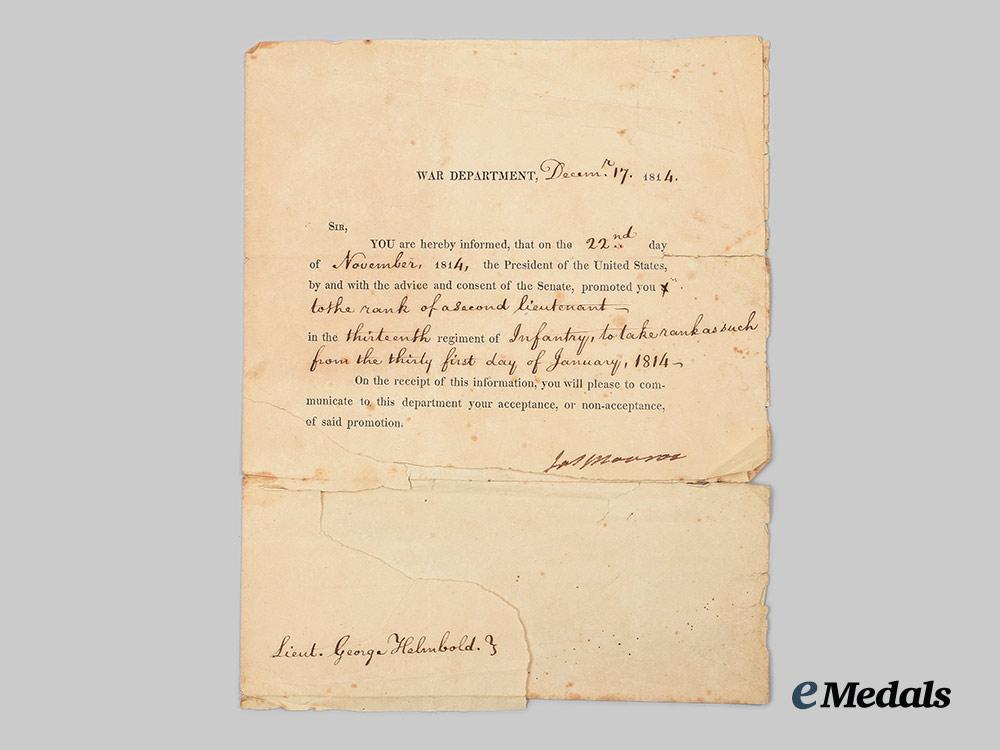 WAR DEPARTMENT, Decemr. 17. 1814.
SIR,
YOU are hereby informed, that on the 22nd day
of November, 1814, the President of the United States,
by and with the advice and consent of the Senate, promoted you
to the rank of a second lieutenant
in the thirteenth regiment of Infantry, to take rank as such
from the thirty first day of January, 1814
On the receipt of this information, you will please to com-
municate to this department your acceptance, or non-acceptance,
of said promotion.
Jas Monroe
Lieut. George Helmbold. }
eMedals